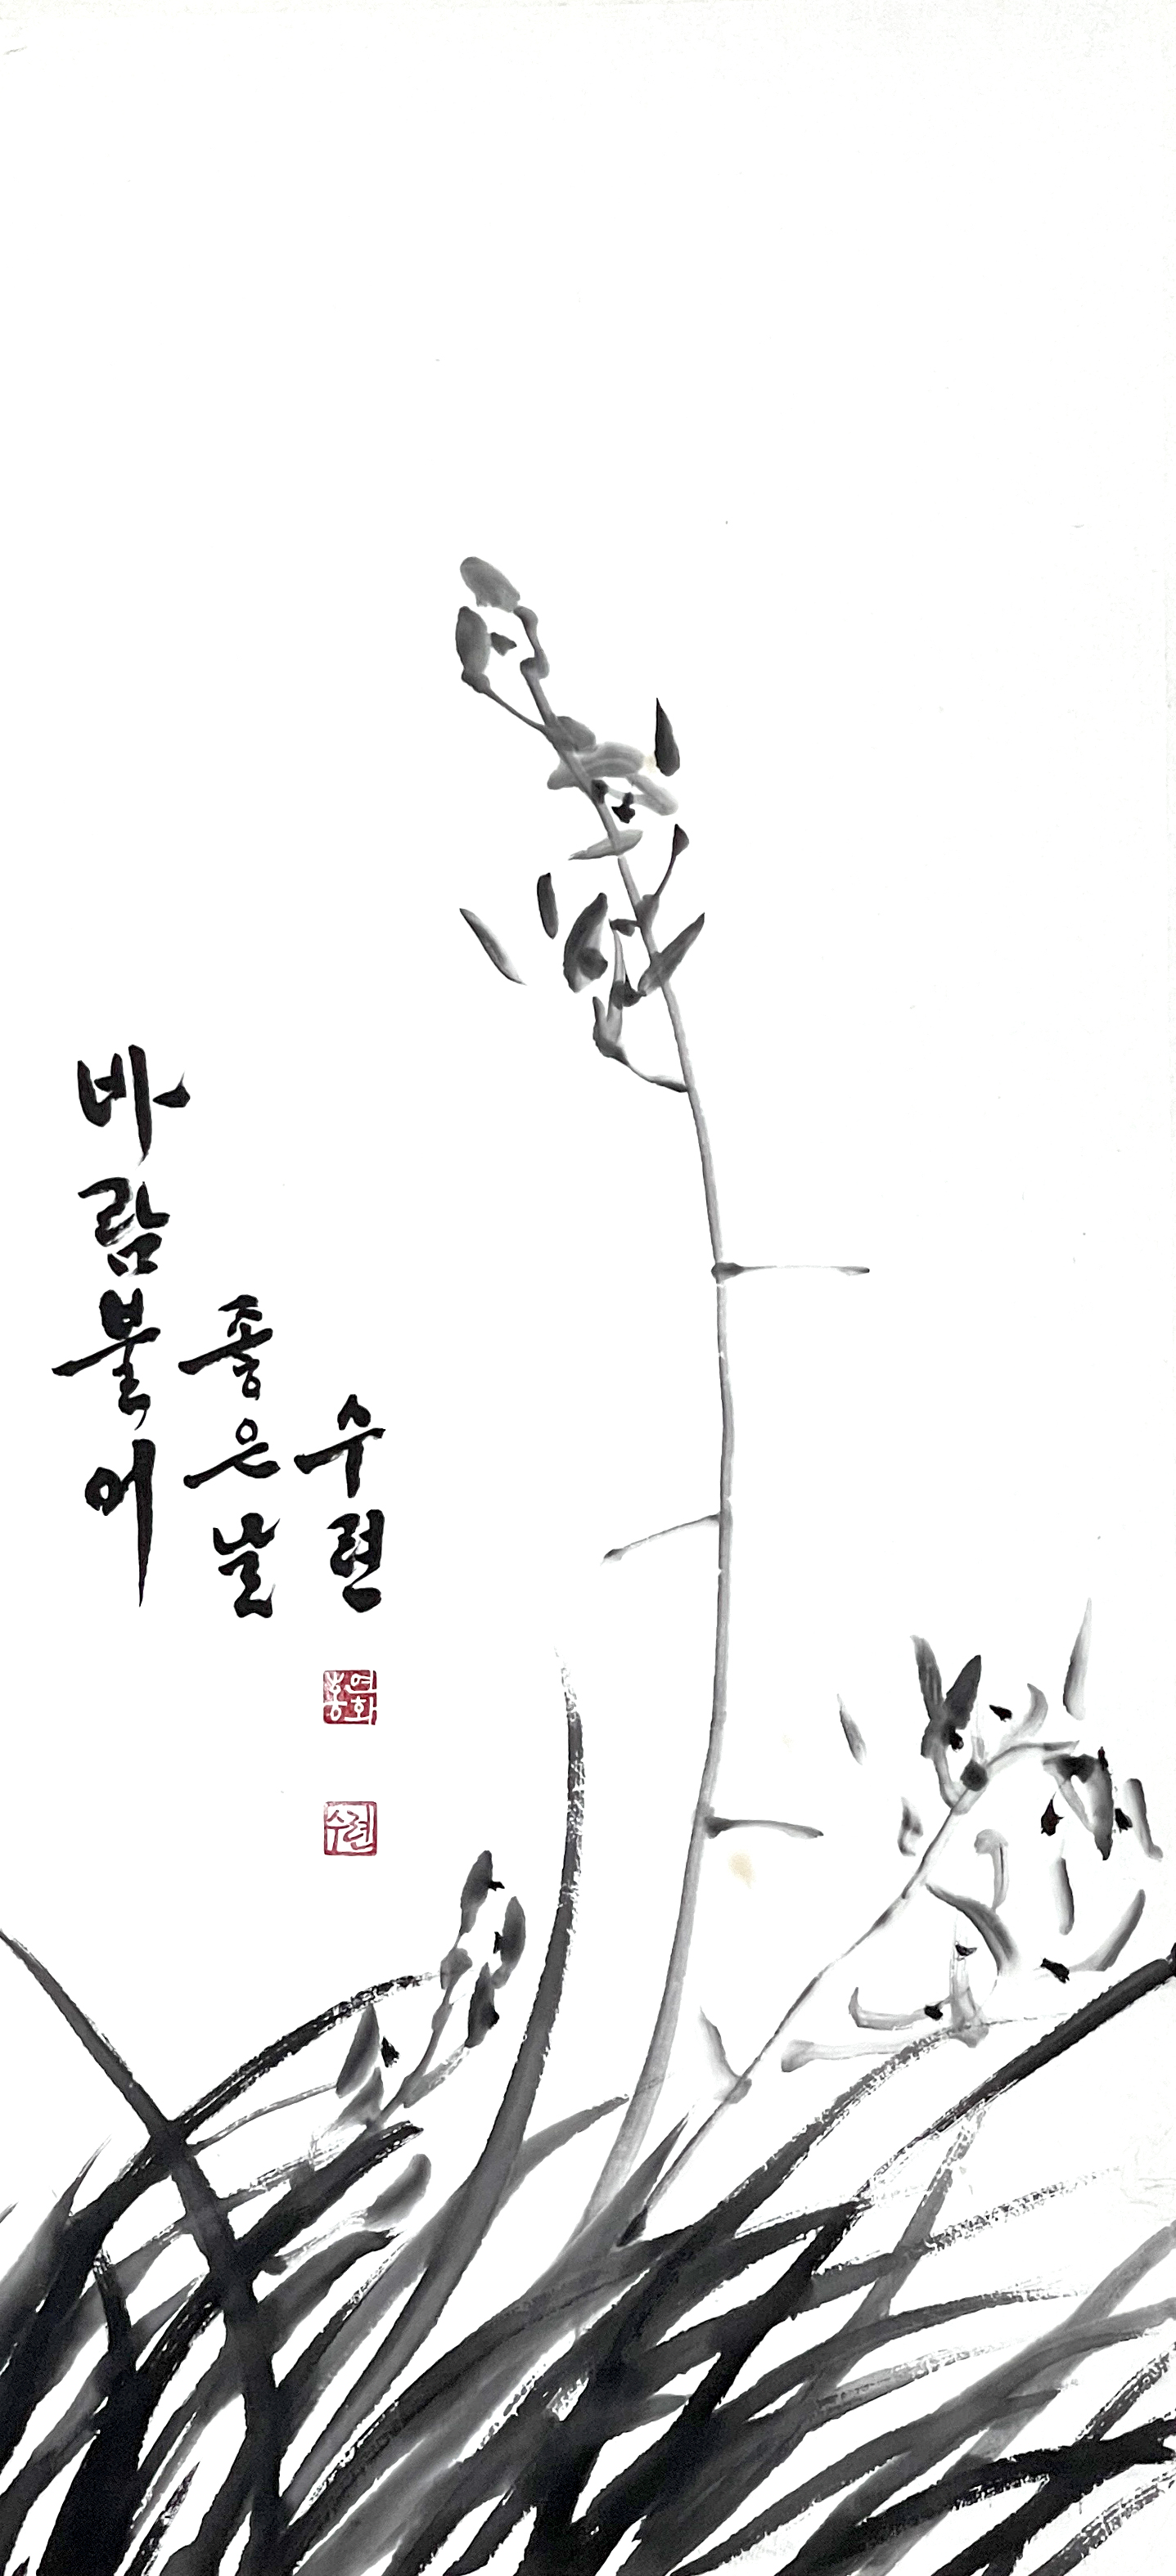 바람불어
좋은날
수련
홍연화
수련